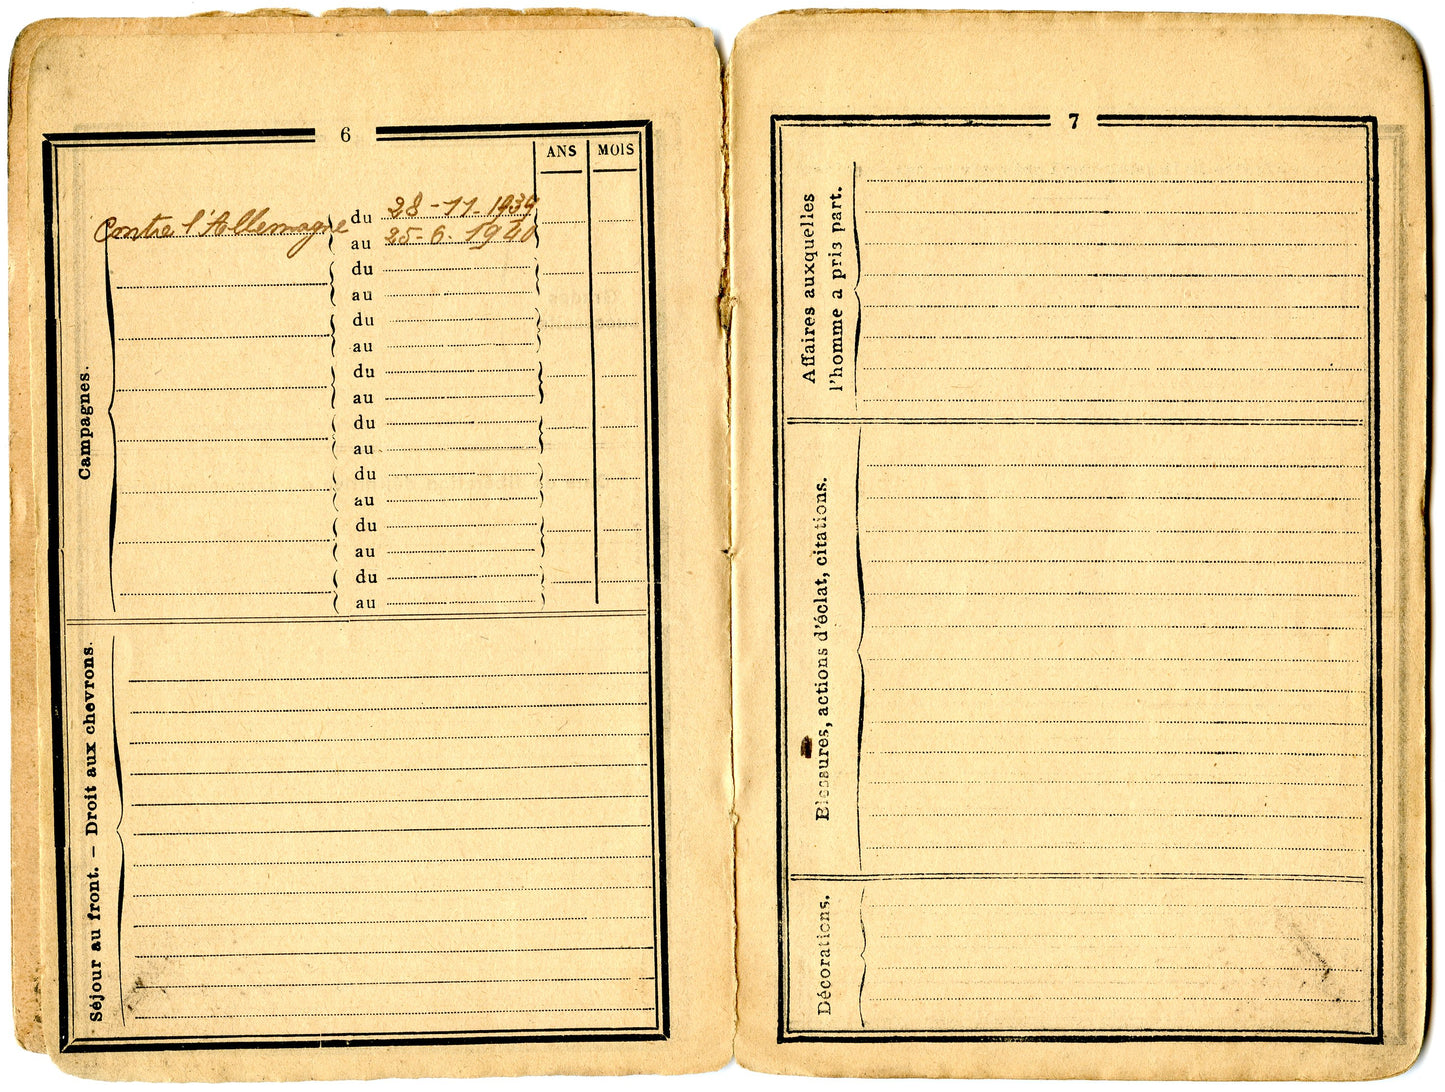 6
ANS MOIS
Campagnes.
Contre l'Allemagne du 28-11-1939
au 25-6-1940
du
au
du
au
du
au
du
au
du
au
du
au
du
au
Séjour au front. — Droit aux chevrons.
7
Affaires auxquelles
l'homme a pris part.
Blessures, actions d'éclat, citations.
Décorations.